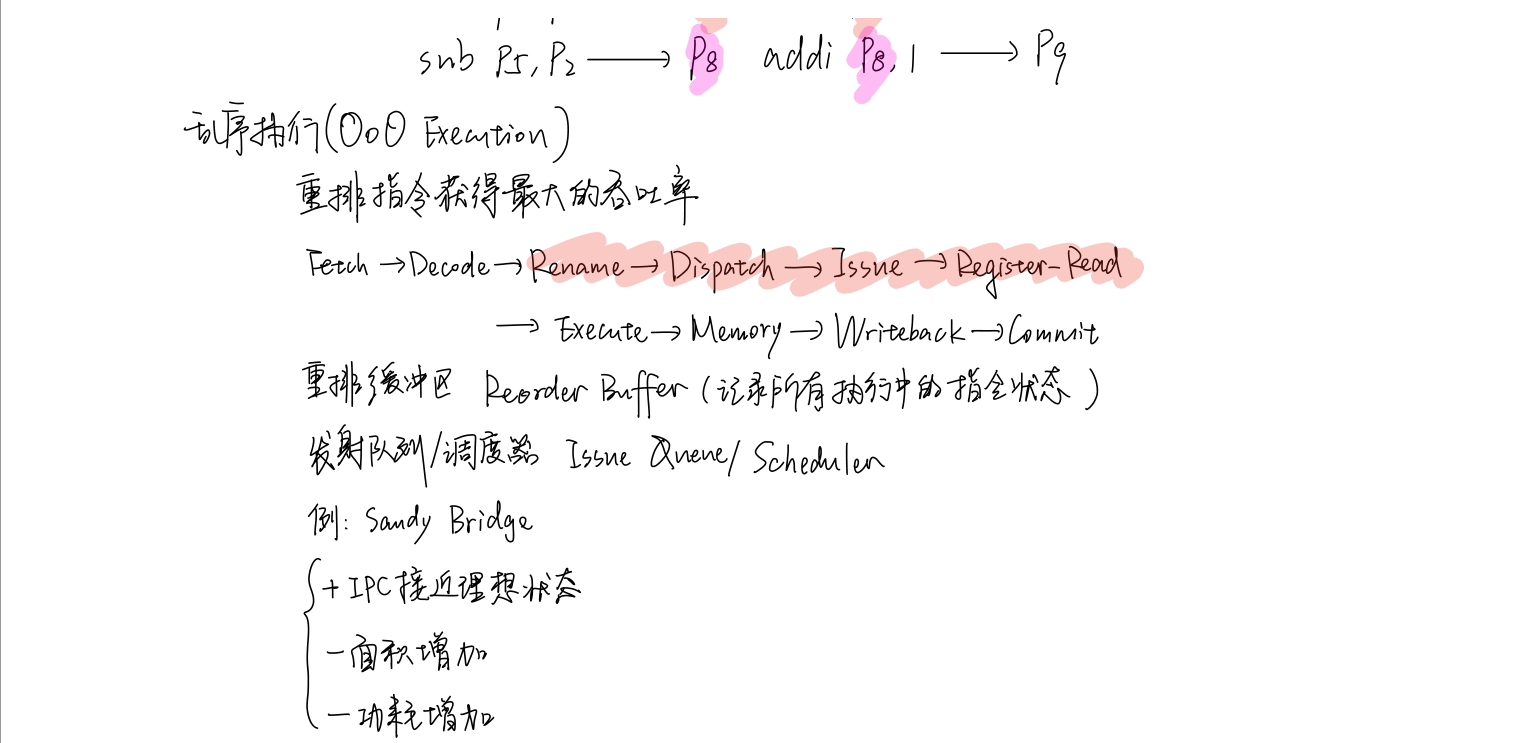 sub P5, P2 → P8 addi P8, 1 → P9
乱序执行(OoO Execution)
重排指令获得最大的吞吐率
Fetch → Decode → Rename → Dispatch → Issue → Register-Read
→ Execute → Memory → Writeback → Commit
重排缓冲区 Reorder Buffer (记录所有执行中的指令状态)
发射队列/调度器 Issue Queue/ Scheduler
例: Sandy Bridge
+ IPC接近理想状态
- 面积增加
- 功耗增加